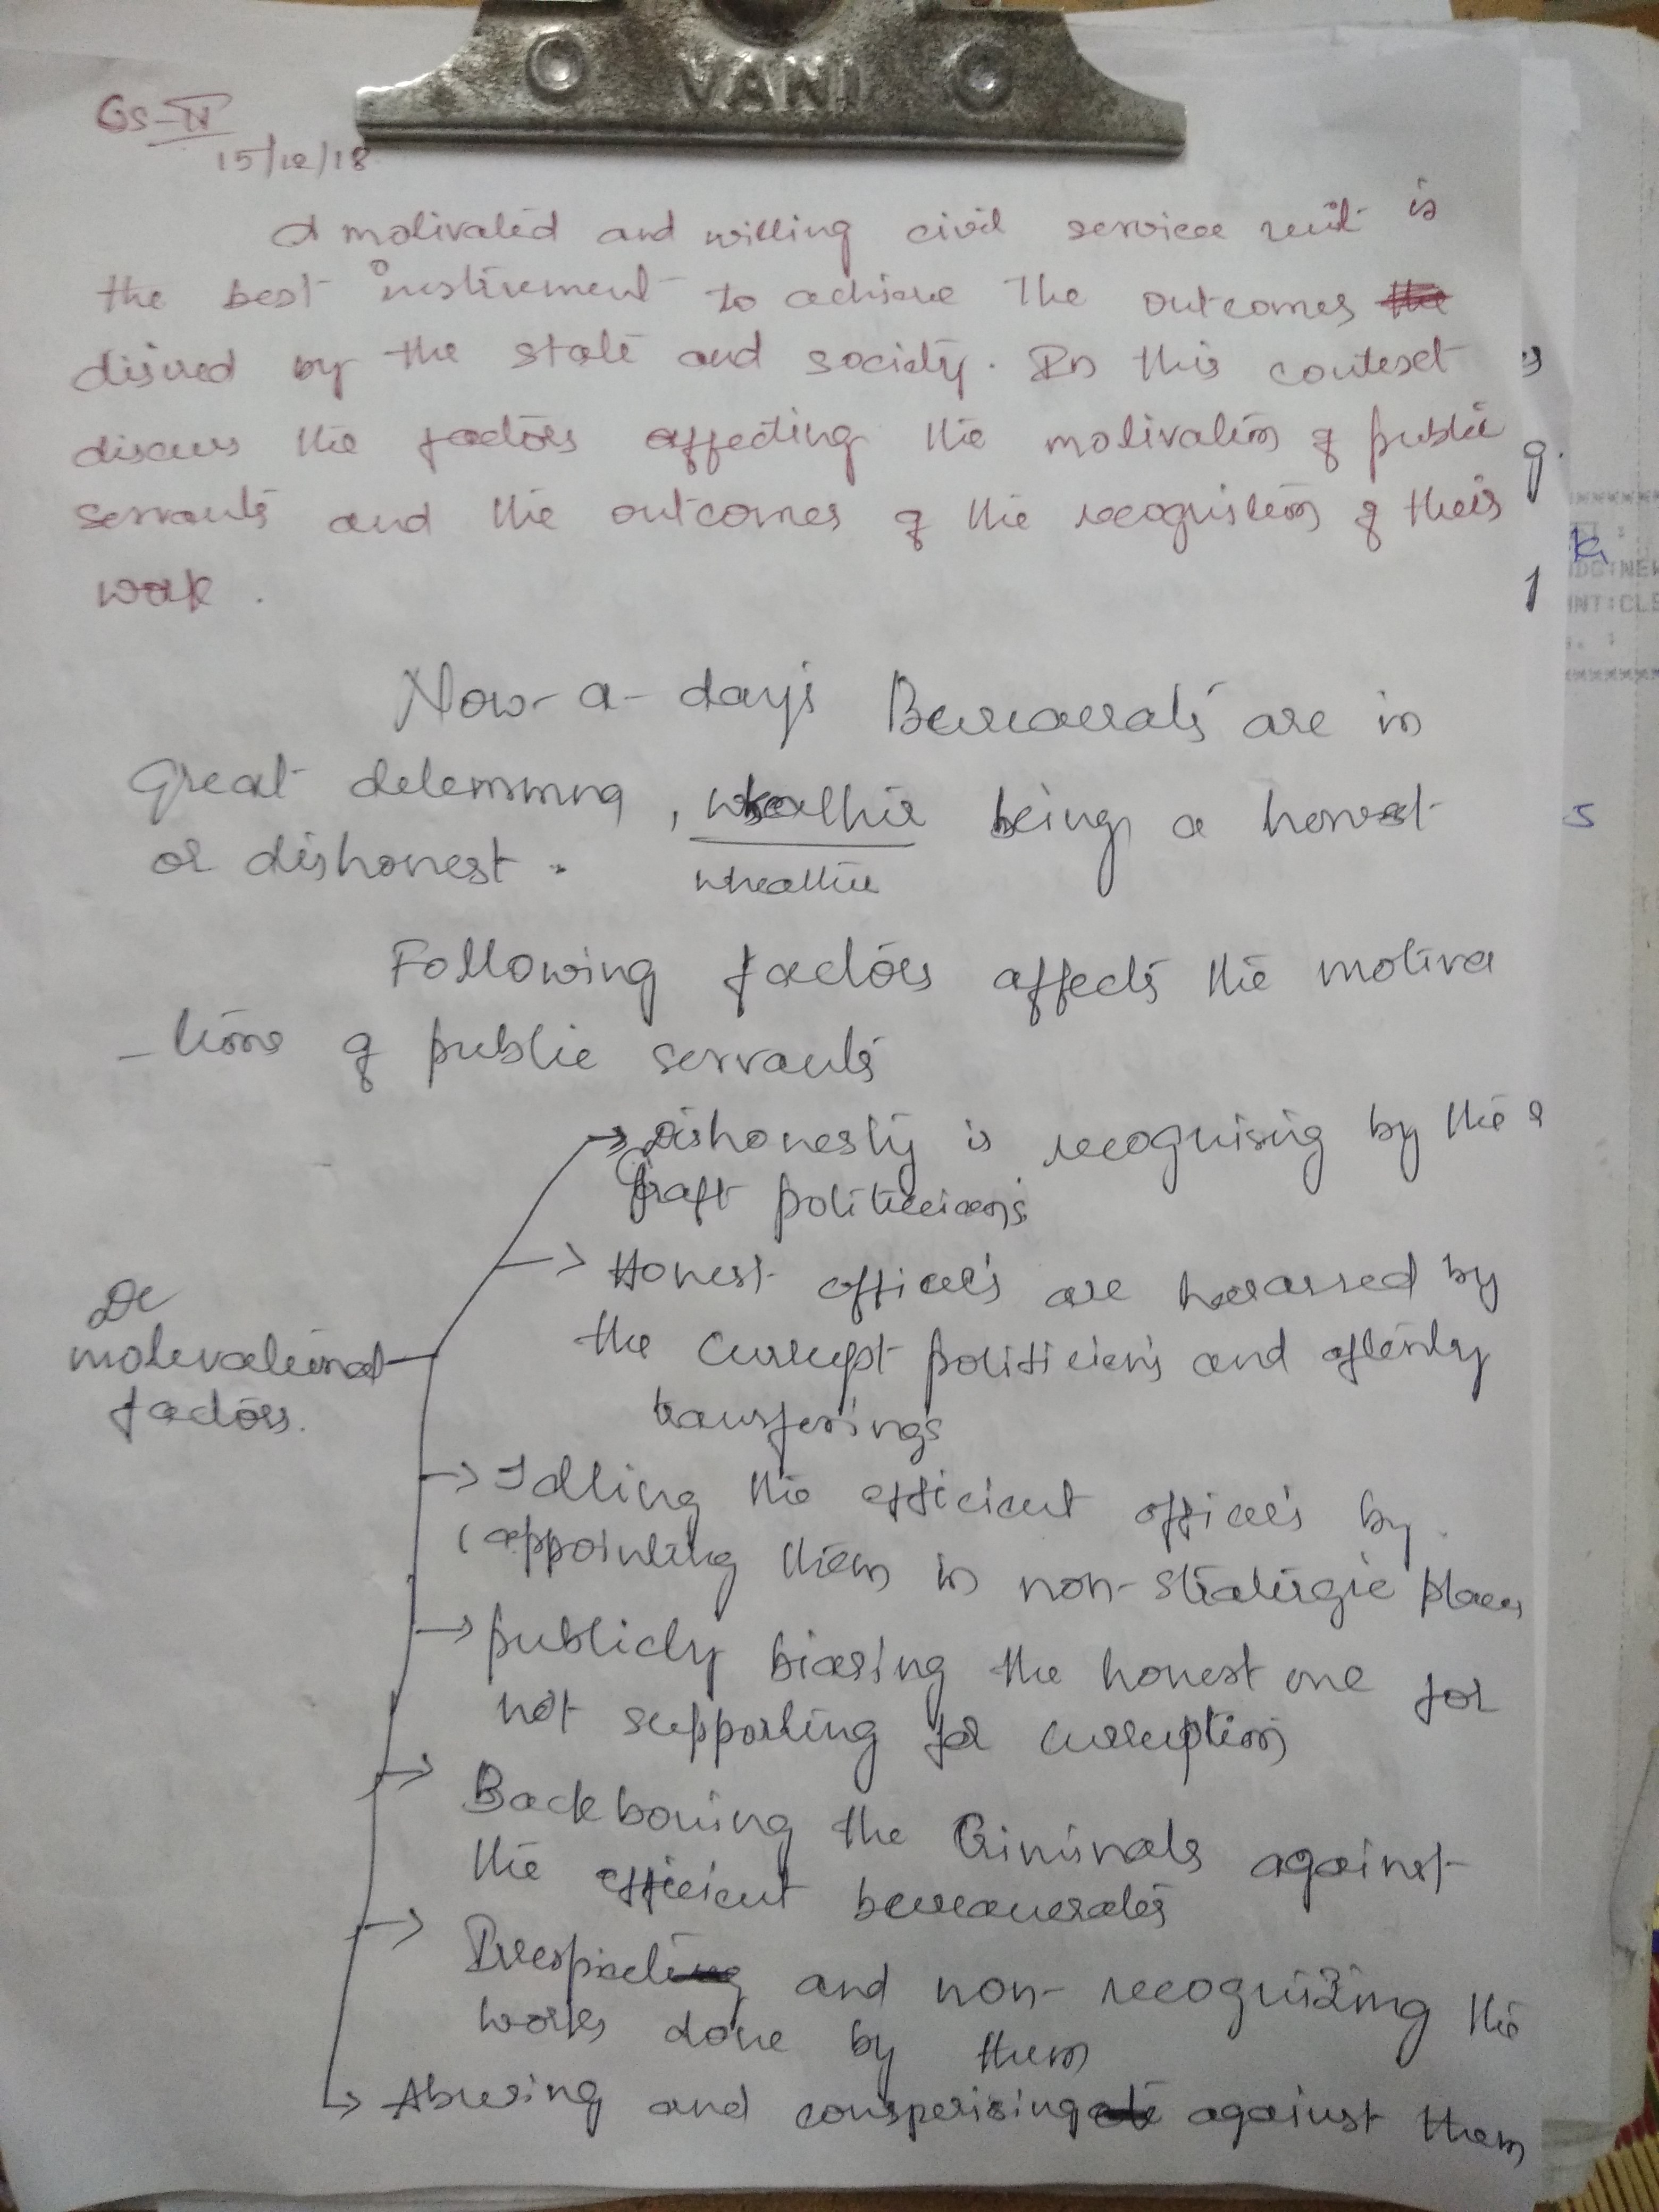 VANI
GS-IV
15/12/18
A motivated and willing civil service unit is
the best instrument to achieve the outcomes
disired by the state and society. In this context
discuss the factors affecting the motivation of public
servants and the outcomes of the recognistion of their
work.
Now-a-days Beureacrats are in
great delemmna, wheathir being a honest
or dishonest.
wheathir
Following factors affects the motiva
-tions of public servants
→ Dishonesty is recognising by the
Graft politicians
→ Honest officers are harassed by
the currupt politicians and oftenly
transferings
De
motivational
factors.
→ Idling the efficient officers by
appointing them in non-stratergic places
→ publicly biasing the honest one for
not supporting for curruption
→ Backboning the Criminals against
the efficient beureaucrates
→ and non-recognizing the
works done by them
→ Abusing and consperising against them
g.
1
5
NT:CLS